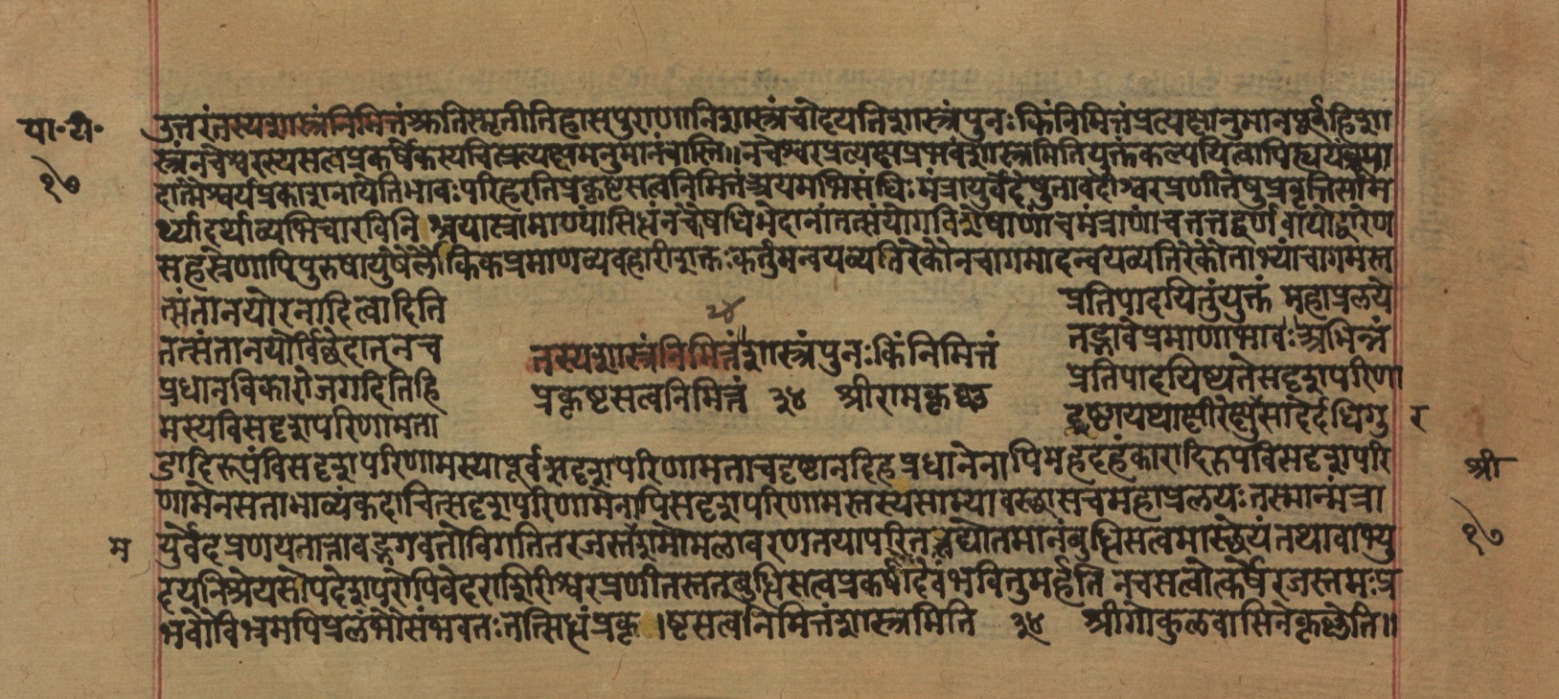 पा॰टी॰
१७
उत्तरंतस्यशास्त्रंनिमित्तंश्रुतिस्मृतीतिहासपुराणानिशास्त्रंचोदयतिशास्त्रंपुनःकिंनिमित्तंप्रत्यक्षानुमानपूर्वंहिशा
स्त्रंनचेश्वरस्यसत्वप्रकर्षेकस्यचित्प्रत्यक्षमनुमानंवास्ति॥नचेश्वरप्रत्यक्षप्रभवंशास्त्रमितियुक्तंकल्पयित्वापिह्ययंब्रूया
दात्मैश्वर्यप्रकाशनायेतिभावःपरिहरतिप्रकृष्टसत्वनिमित्तंअयमभिसंधिःमंत्रायुर्वेदेषुतावदीश्वरप्रणीतेषुप्रवृत्तिसाम
र्थ्यादर्थाव्यभिचारविनिश्चयात्प्रामाण्यंसिद्धंनचौषधिभेदानांतत्संयोगविशेषाणांचमंत्राणांचतत्तद्वर्णावापोद्धारेण
सहस्रेणापिपुरुषायुषैर्लौकिकप्रमाणव्यवहारीशक्तःकर्तुमन्वयव्यतिरेकोनचागमादन्वयव्यतिरेकोताभ्यांचागमस्त
त्संतानयोरनादित्वादिति
तत्संतानयोर्विछेदात्नच
प्रधानविकारोजगदितिहि
मस्यविसदृशपरिणामता
२४
तस्यशास्त्रंनिमित्तंशास्त्रंपुनःकिंनिमित्तं
प्रकृष्टसत्वनिमित्तं २४ श्रीरामकृष्ण
प्रतिपादयितुंयुक्तं महाप्रलये
तद्भावेप्रमाणाभावःअभिन्नं
प्रतिपादयिष्यतेसदृशपरिणा
दृष्टायथाक्षीरेक्षुरसादेर्दधिगु
डादिरूपंविसदृशपरिणामस्यापूर्वसदृशपरिणामताचदृष्टातदिहप्रधानेनापिमहदहंकारादिरूपविसदृशपरि
णामेनसताभाव्यंकदाचित्सदृशपरिणामेनापिसदृशपरिणामस्तस्यसाम्यावस्थासचमहाप्रलयःतस्मान्मंत्रा
युर्वेदप्रणयनात्तावद्भगवतोविगलितरजस्तमोमलावरणतयापरितःप्रद्योतमानंबुद्धिसत्वमास्थेयंतथावाभ्यु
दयनिश्रेयसोपदेशपरोपिवेदराशिरीश्वरप्रणीतस्तत्बुद्धिसत्वप्रकर्षादेवंभवितुमर्हति नचसत्वोत्कर्षेरजस्तमःप्र
भवौविभ्रमविप्रलंभौसंभवतःतत्सिद्धंप्रकृ।ष्टसत्वनिमित्तंशास्त्रमिति २४ श्रीगोकुळवासिनेकृष्णेति॥
र
श्री
१७
म